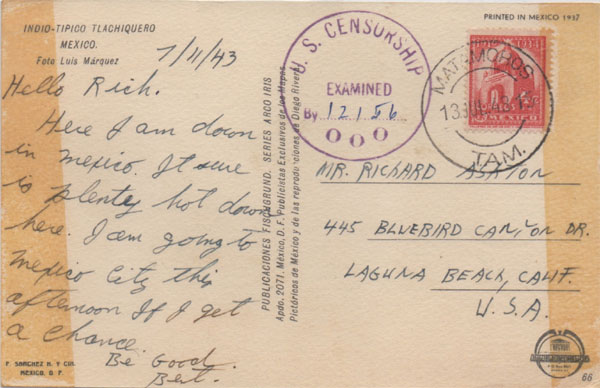 INDIO-TIPICO TLACHIQUERO
MEXICO.
Foto Luis Márquez
7/11/43
Hello Rich.
Here I am down
in mexico. It sure
is plenty hot down
here. I am going to
mexico City this
afternoon If I get
a chance.
Be Good.
Bert.
F. SANCHEZ H. Y CIA.
MEXICO, D. F.
PUBLICACIONES FISCHGRUND. SERIES ARCO IRIS
Apdo. 2071. México, D. F. Publicistas Exclusivos de los Mapas
Pictóricos de México y de las reproducciones de Diego Rivera
U. S. CENSORSHIP
EXAMINED
By 12156
000
PRINTED IN MEXICO 1937
MATAMOROS
TAM.
MEXICO
MR. RICHARD ASHTON
445 BLUEBIRD CANYON DR.
LAGUNA BEACH, CALIF.
U.S.A.
66